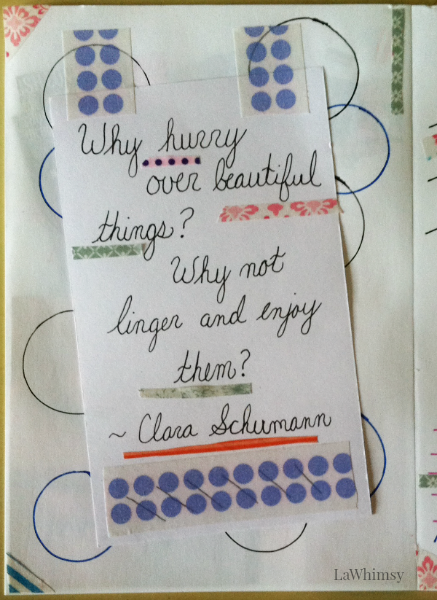 Why hurry
over beautiful
things?
Why not
linger and enjoy
them?
~ Clara Schumann
LaWhimsy